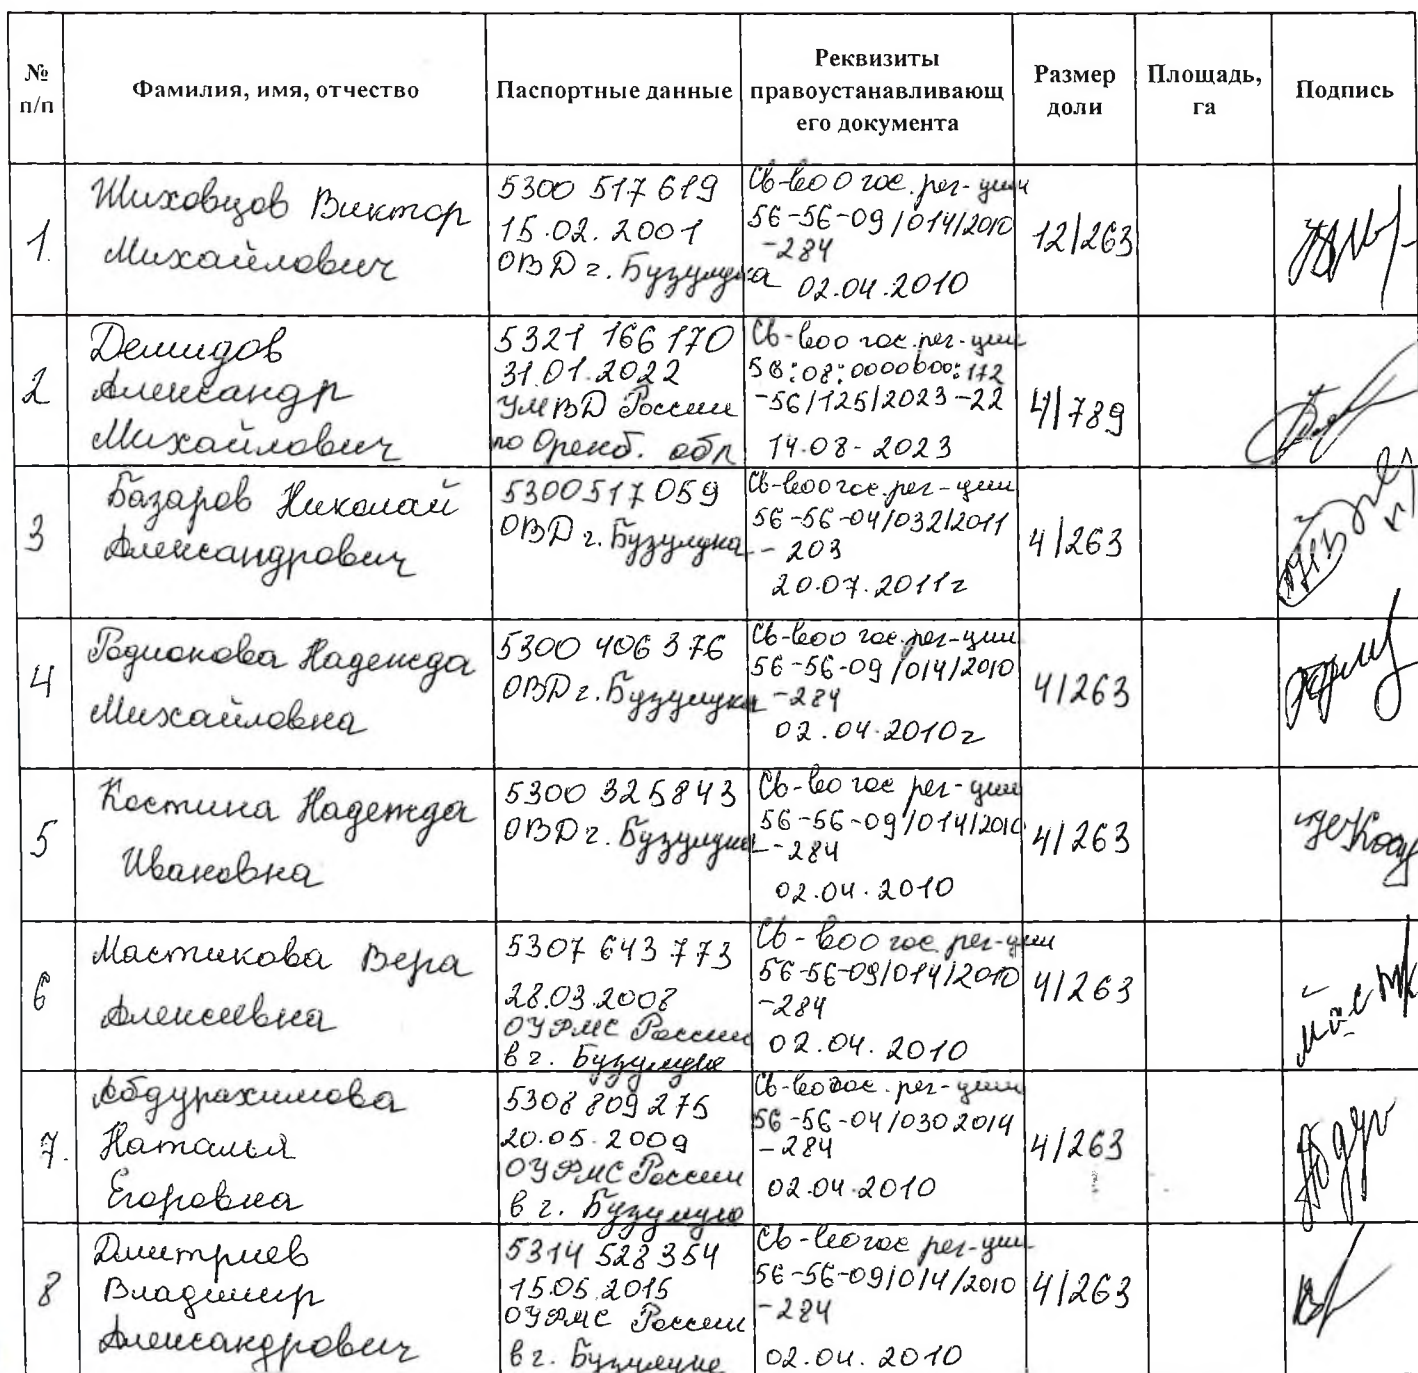 № п/п
Фамилия, имя, отчество
Паспортные данные
Реквизиты
правоустанавливающ
его документа
Размер
доли
Площадь,
га
Подпись
1.
Шиховцов Виктор
Михайлович
5300 517 619
15.02.2001
ОВД г. Бузулука
Св-во о гос. рег-ции
56-56-09/014/2010
-284
02.04.2010
12/263
2
Демидов
Александр
Михайлович
5321 166 170
31.01.2022
УМВД России
по Оренб. обл
Св-во о гос. рег-ции
56:08:0000000:172
-56/125/2023-22
14.08-2023
4/789
3
Базаров Николай
Александрович
5300517 059
ОВД г. Бузулука
Св-во о гос. рег-ции
56-56-04/032/2011
-- 203
20.07.2011г
4/263
4
Родионова Надежда
Михайловна
5300 406 376
ОВД г. Бузулука
Св-во о гос. рег-ции
56-56-09/014/2010
-284
02.04.2010г
4/263
5
Костина Надежда
Ивановна
5300 325843
ОВД г. Бузулука
Св-во гос рег-ции
56-56-09/014/2010
--284
02.04.2010
4/263
6
Мастикова Вера
Алексеевна
5307 643 773
28.03.2008
ОУФМС России
в г. Бузулуке
Св-во о гос. рег-ции
56-56-09/014/2010
-284
02.04.2010
4/263
7.
Абдурахимова
Наталья
Егоровна
5308 809 275
20.05.2009
ОУФМС России
в г. Бузулуке
Св-во гос. рег-ции
56-56-04/030 2014
-284
02.04.2010
4/263
8
Дмитриев
Владимир
Александрович
5314 528 354
15.05.2015
ОУФМС России
в г. Бузулуке
Св-во гос рег-ции
56-56-09/014/2010
-284
02.04.2010
4/263